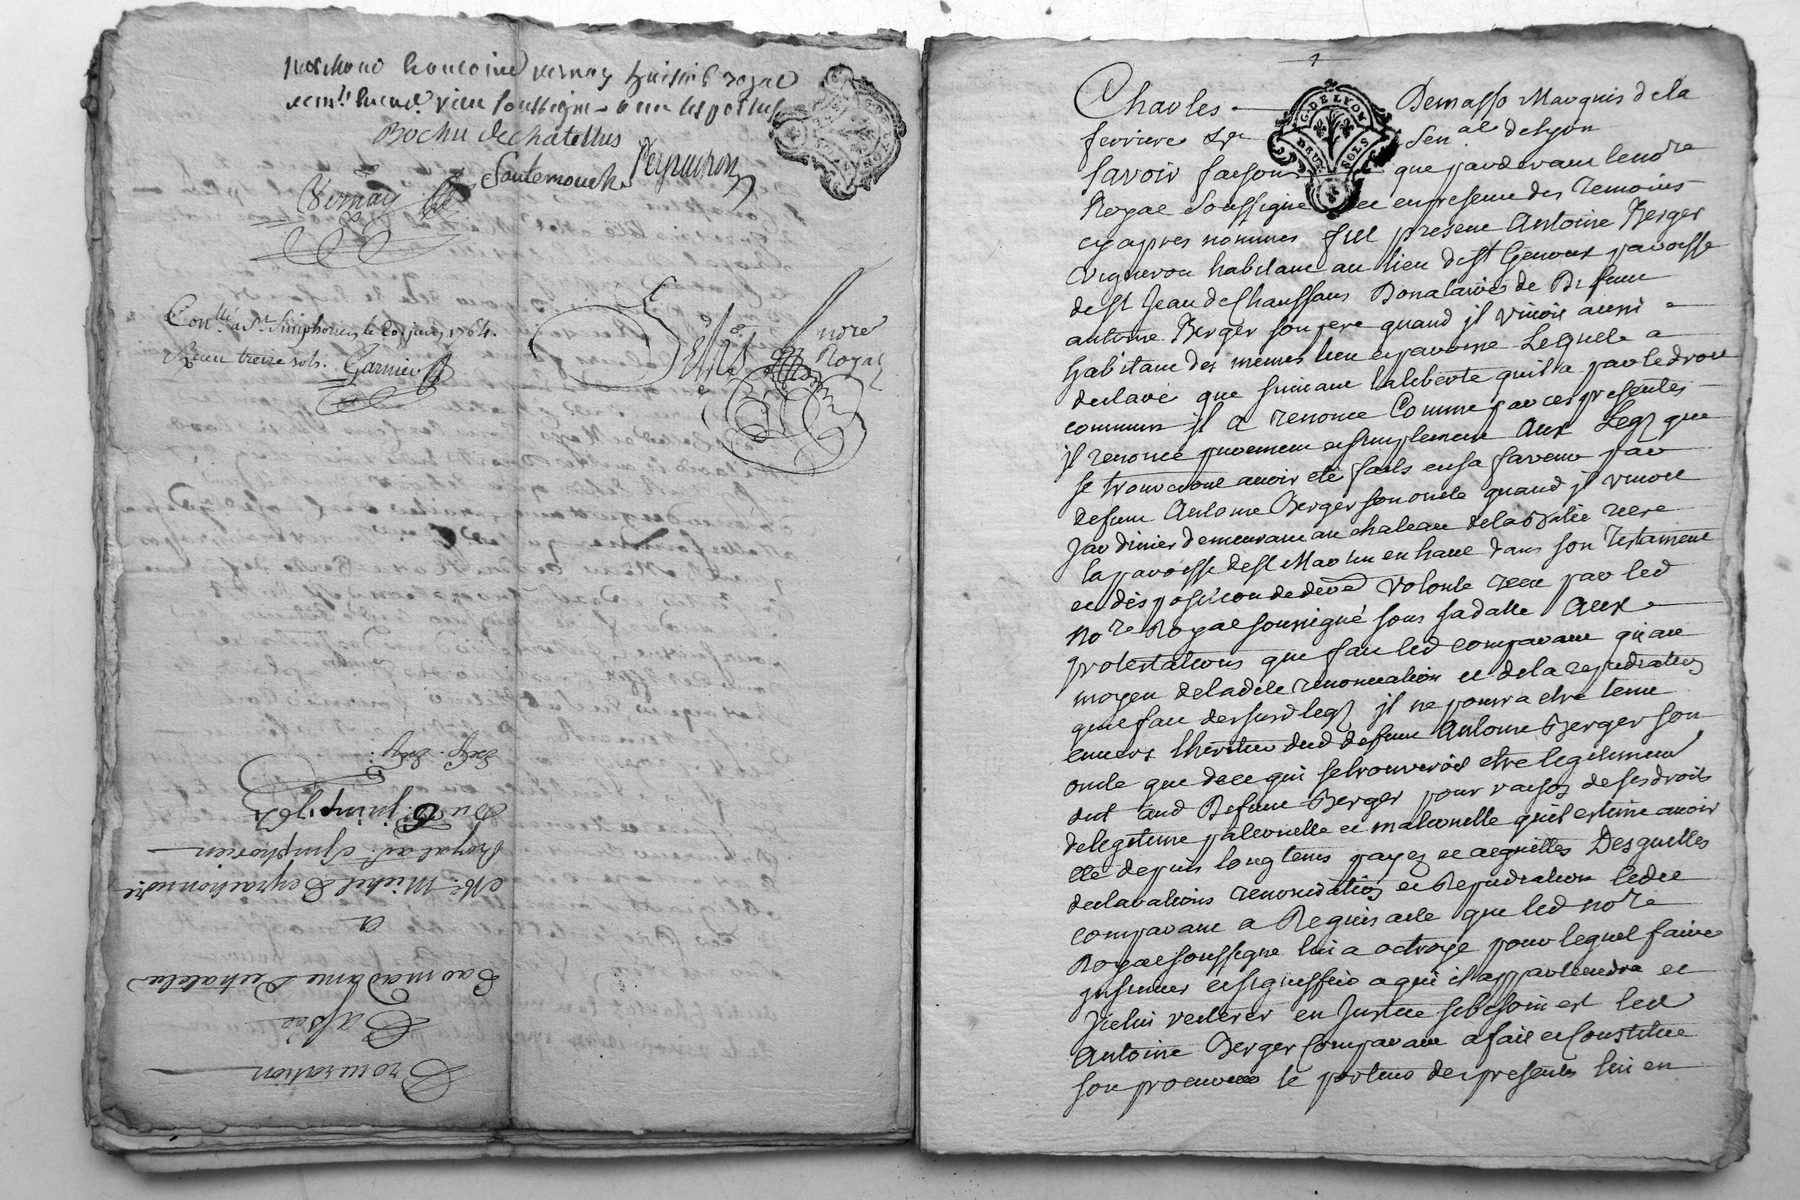 marchand antoine vernay huissie royal
vieu soussigne
Bochu de chatellus
Vernay
Soutemouche Peyrachon
Con.lé a St. Simphorien le 20 juin 1764.
Recu treize sols. Garnier
nore
Royal
Procuration
Passée
Par madame Duchatelus
a
Me. Michel Peyrachon no.re
Royal a st. Simphorien
Du 6 juin 1764
Exp. Exp.
Charles Demasso Marquis dela
ferriere Sen.al de Lyon
G. DE LYON
DEUX SOLS
savoir faisons que pardevant le no.re
Royal soussigné et en presence des temoins
cy apres nommes fut present Antoine Berger
vigneron habitant au lieu de st Genoux paroisse
de st Jean de Chaussans Donataire de Defunt
antoine Berger son pere quand jl vivoit aussi
habitant des memes lieu et paroisse Lequel a
declaré que suivant la liberte quil a par le droit
commun jl a renoncé Comme par ces presentes
jl renonce purement et simplement aux Legz que
se trouveront avoir eté faits en sa faveur par
defunt Antoine Berger son oncle quand jl vivoit
jardinier demeurant au chateau de la
la paroisse de st Martin en haut dans son Testament
et disposition de derre volonté receu par led
no.re Royal soussigné sous sa datte aux
protestations que fait led comparant qu'au
moyen de la dite renonciation et de la repudiation
que fait desusd legz jl ne pourra etre tenu
envers lheritier dud defunt Antoine Berger son
oncle que de ce qui se trouveroit etre legitimement
dut aud Defunt Berger pour raison de ses droits
de legitime paternelle et maternelle quil estime avoir
eté depuis longtems payez et acquittes Desquelles
declarations renonciation et Repudiation ledit
comparant a Requis acte que led no.re
Royal soussigne lui a octroyé pour lequel faire
jnsinuer et signiffier a qui il appartiendra et
jcelui reiterer en Justice si besoin est led
Antoine Berger Comparant a fait et Constitué
son procureur le porteur des presentes lui en